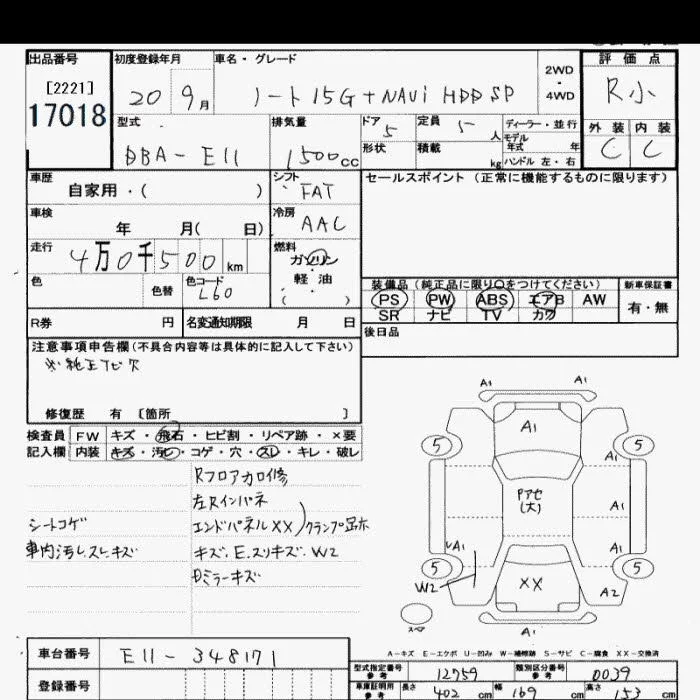 出品番号 初度登録年月 車名・グレード 2WD・4WD 評価点
[2221]
17018
20 9月 ノート 15G+NAVi HDD SP R小
型式 排気量 ドア 5 定員 5人 ディーラー・並行 外装 内装
モデル年式 年
DBA-E11 1500cc 形状 積載 kg ハンドル 左・右 C C
車歴 シフト セールスポイント (正常に機能するものに限ります)
自家用・( ) FAT
車検 冷房
年 月( 日) AAC
走行 燃料
4万0千500km ガソリン
色 色替 色コード 軽油
L60 ( )
装備品 (純正品に限り○をつけてください) 新車保証書
PS PW ABS エアB AW 有・無
SR ナビ TV カワ
R券 円 名変通知期限 月 日 後日品
注意事項申告欄(不具合内容等は具体的に記入して下さい)
※純正TV欠
修復歴 有 [箇所 ]
検査員 FW キズ・飛石・ヒビ割・リペア跡・×要
記入欄 内装 キズ・汚レ・コゲ・穴・スレ・キレ・破レ
Rフロアカロ修
左Rインパネ
シートコゲ エンドパネルXX)クランプ跡
車内汚レ.スレ.キズ キズ.E.スリキズ.W2
Dミラーキズ
A1 A1
A1
5 5
A1
Pアセ
(大)
A1
A1 A1
5 5
W2 XX A2
スペア A1
A-キズ E-エクボ U-凹み W-補修跡 S-サビ C-腐食 XX-交換済
車台番号 E11-348171
型式指定番号 参考 12759 類別区分番号 参考 0039
登録番号 車庫証明用 参考 長さ 402cm 幅 169cm 高さ 153cm